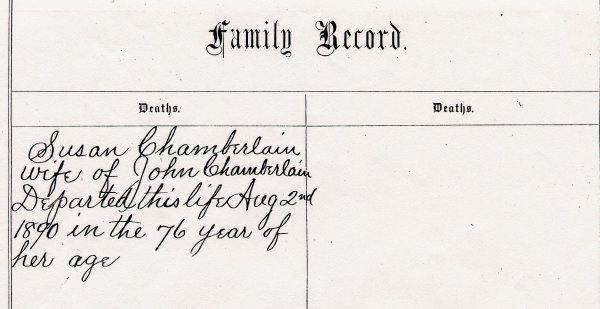 Family Record.
Deaths.
Deaths.
Susan Chamberlain
wife of John Chamberlain
Departed this life Aug 2nd
1890 in the 76 year of
her age